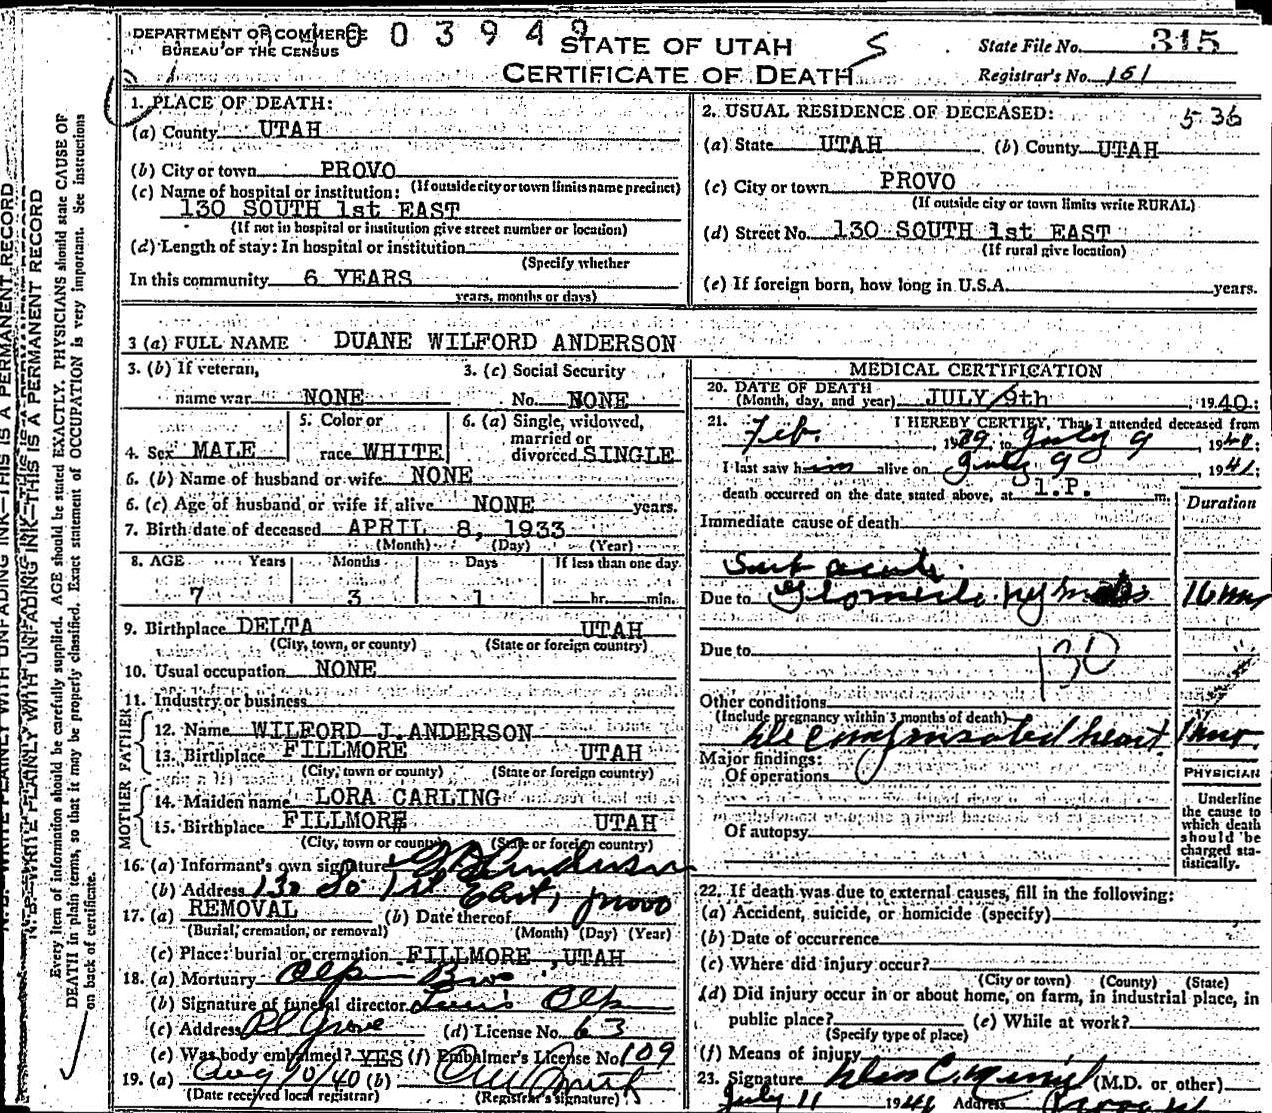 DEPARTMENT OF COMMERCE
BUREAU OF THE CENSUS
003949
STATE OF UTAH
CERTIFICATE OF DEATH
S
State File No. 315
Registrar's No. 151
1. PLACE OF DEATH:
(a) County UTAH
(b) City or town PROVO
(If outside city or town limits name precinct)
(c) Name of hospital or institution:
130 SOUTH 1st EAST
(If not in hospital or institution give street number or location)
(d) Length of stay: In hospital or institution
(Specify whether
In this community 6 YEARS
years, months or days)
2. USUAL RESIDENCE OF DECEASED: 536
(a) State UTAH (b) County UTAH
(c) City or town PROVO
(If outside city or town limits write RURAL)
(d) Street No. 130 SOUTH 1st EAST
(If rural give location)
(e) If foreign born, how long in U.S.A. years.
3 (a) FULL NAME DUANE WILFORD ANDERSON
3. (b) If veteran,
name war NONE
3. (c) Social Security
No. NONE
4. Sex MALE
5. Color or
race WHITE
6. (a) Single, widowed,
married or
divorced SINGLE
6. (b) Name of husband or wife NONE
6. (c) Age of husband or wife if alive NONE years.
7. Birth date of deceased APRIL 8, 1933
(Month) (Day) (Year)
8. AGE Years Months Days If less than one day
7 3 1 hr. min.
9. Birthplace DELTA UTAH
(City, town, or county) (State or foreign country)
10. Usual occupation NONE
11. Industry or business
FATHER
12. Name WILFORD J. ANDERSON
13. Birthplace FILLMORE UTAH
(City, town or county) (State or foreign country)
MOTHER
14. Maiden name LORA CARLING
15. Birthplace FILLMORE UTAH
(City, town or county) (State or foreign country)
16. (a) Informant's own signature Anderson
(b) Address 130 So 1st East, Provo
17. (a) REMOVAL (b) Date thereof
(Burial, cremation, or removal) (Month) (Day) (Year)
(c) Place: burial or cremation FILLMORE, UTAH
18. (a) Mortuary Olpin Bros
(b) Signature of funeral director Olpin
(c) Address Pl Grove (d) License No. 63
(e) Was body embalmed? YES (f) Embalmer's License No. 109
19. (a) Aug 10/40 (b)
(Date received local registrar) (Registrar's signature)
MEDICAL CERTIFICATION
20. DATE OF DEATH
(Month, day, and year) JULY 9th, 1940:
21. I HEREBY CERTIFY, That I attended deceased from
Feb. 1939 to July 9, 1940:
I last saw him alive on July 9 1940:
death occurred on the date stated above, at 1.P. m.
Duration
Immediate cause of death
Sub acute
Due to Glomerulo 16 mos
Due to
130
Other conditions
(Include pregnancy within 3 months of death)
Decompensated heart 1 mo.
Major findings:
Of operations
Of autopsy
PHYSICIAN
Underline
the cause to
which death
should be
charged sta-
tistically.
22. If death was due to external causes, fill in the following:
(a) Accident, suicide, or homicide (specify)
(b) Date of occurrence
(c) Where did injury occur?
(City or town) (County) (State)
(d) Did injury occur in or about home, on farm, in industrial place, in
public place? (e) While at work?
(Specify type of place)
(f) Means of injury
23. Signature (M.D. or other)
July 11 1940 Address
N.B. WRITE PLAINLY WITH UNFADING INK—THIS IS A PERMANENT RECORD
N.B. WRITE PLAINLY WITH UNFADING INK—THIS IS A PERMANENT RECORD
Every item of information should be carefully supplied. AGE should be stated EXACTLY. PHYSICIANS should state CAUSE OF
DEATH in plain terms, so that it may be properly classified. Exact statement of OCCUPATION is very important. See instructions
on back of certificate.